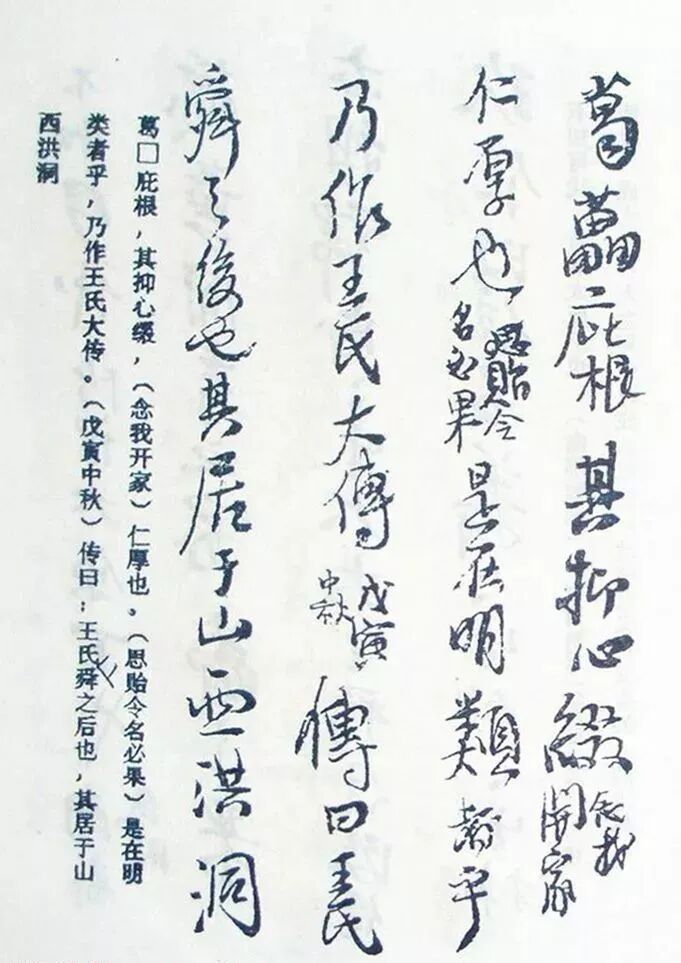 葛藟庇根其抑心缀念我開家
仁厚也思貽令名必果是在明類者乎
乃作王氏大傳戊寅中秋傳曰王氏
舜之後也其居于山西洪洞
葛□庇根，其抑心缀，（念我开家）仁厚也。（思贻令名必果）是在明
类者乎，乃作王氏大传。（戊寅中秋）传曰：王氏舜之后也，其居于山
西洪洞